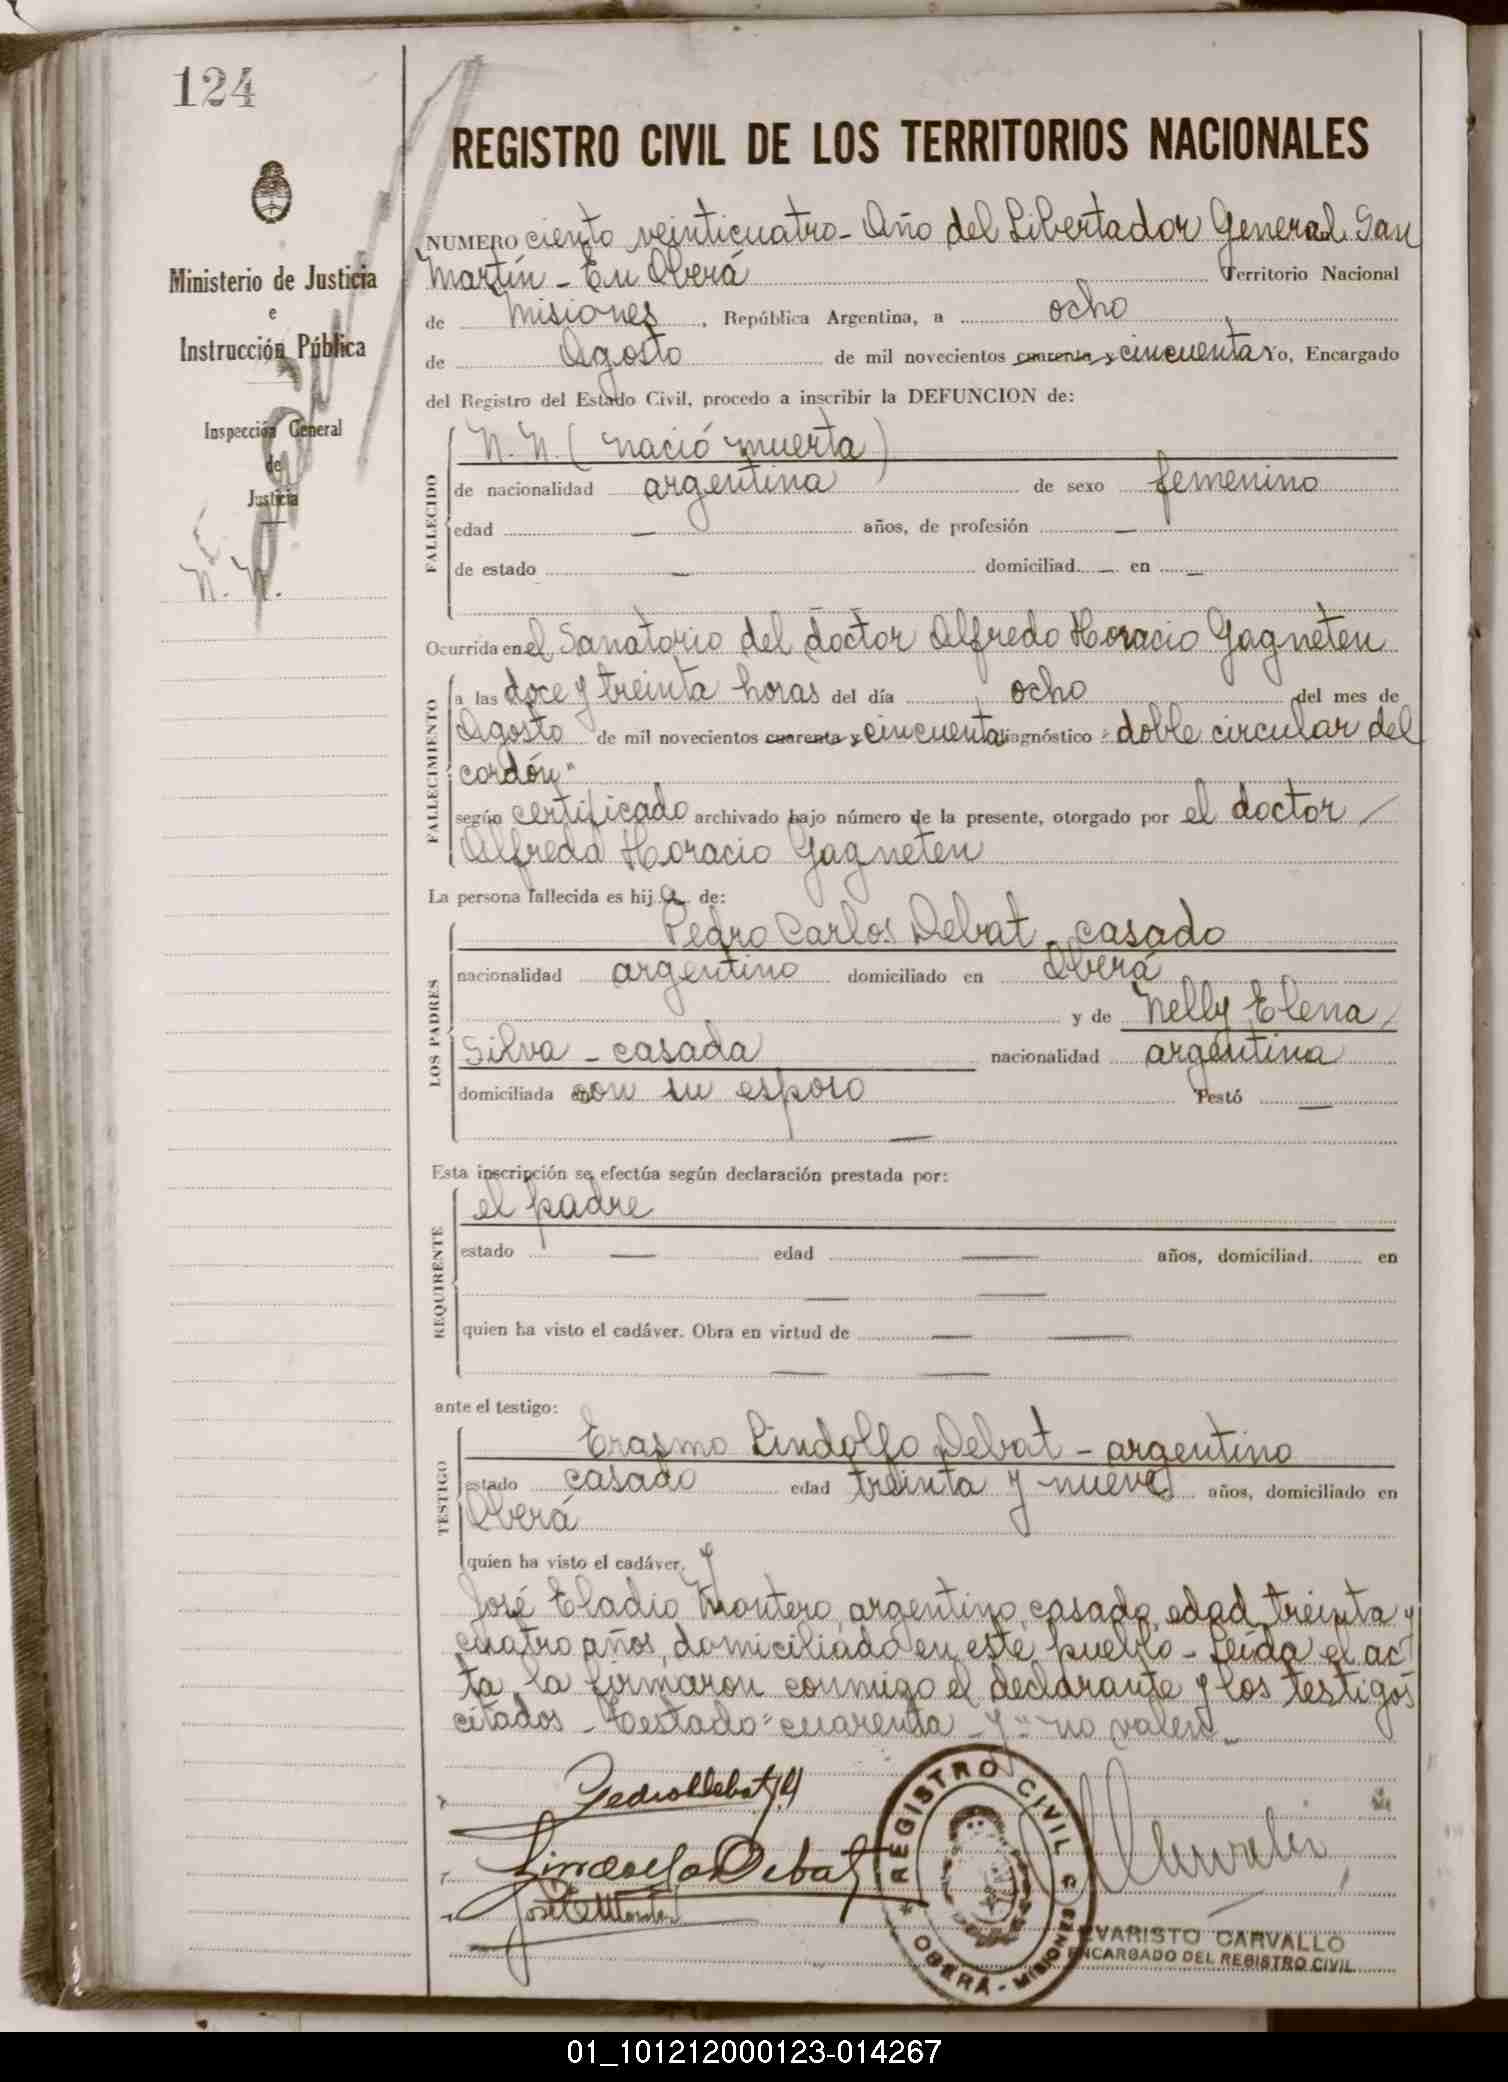 124
REGISTRO CIVIL DE LOS TERRITORIOS NACIONALES
Ministerio de Justicia
e
Instrucción Pública
Inspección General
de
Justicia
N. N.
NUMERO ciento veinticuatro - Año del Libertador General San
Martín - En Oberá Territorio Nacional
de Misiones, República Argentina, a ocho
de Agosto de mil novecientos cuarenta y cincuenta Yo, Encargado
del Registro del Estado Civil, procedo a inscribir la DEFUNCION de:
FALLECIDO
N. N. ( nació muerta )
de nacionalidad argentina de sexo femenino
edad — años, de profesión —
de estado — domiciliad — en —
Ocurrida en el Sanatorio del doctor Alfredo Horacio Gagneten
FALLECIMIENTO
a las doce y treinta horas del día ocho del mes de
Agosto de mil novecientos cuarenta y cincuenta diagnóstico "doble circular del
cordón"
según certificado archivado bajo número de la presente, otorgado por el doctor
Alfredo Horacio Gagneten
La persona fallecida es hija de:
LOS PADRES
Pedro Carlos Debat - casado
nacionalidad argentino domiciliado en Oberá
y de Nelly Elena
Silva - casada nacionalidad argentina
domiciliada con su esposo Testó —
—
Esta inscripción se efectúa según declaración prestada por:
REQUIRENTE
el padre
estado — edad — años, domiciliad en
— —
quien ha visto el cadáver. Obra en virtud de — —
— —
ante el testigo:
TESTIGO
Erasmo Lindolfo Debat - argentino
estado casado edad treinta y nueve años, domiciliado en
Oberá
quien ha visto el cadáver. y
José Eladio Montero, argentino, casado, edad treinta y
cuatro años, domiciliado en este pueblo - Leída el ac-
ta, la firmaron conmigo el declarante y los testigos
citados - Testado "cuarenta - y" - no valen -
Pedro C Debat (h)
Lindolfo Debat
José E Montero
REGISTRO CIVIL
OBERÁ - MISIONES
EVARISTO CARVALLO
ENCARGADO DEL REGISTRO CIVIL
01_101212000123-014267